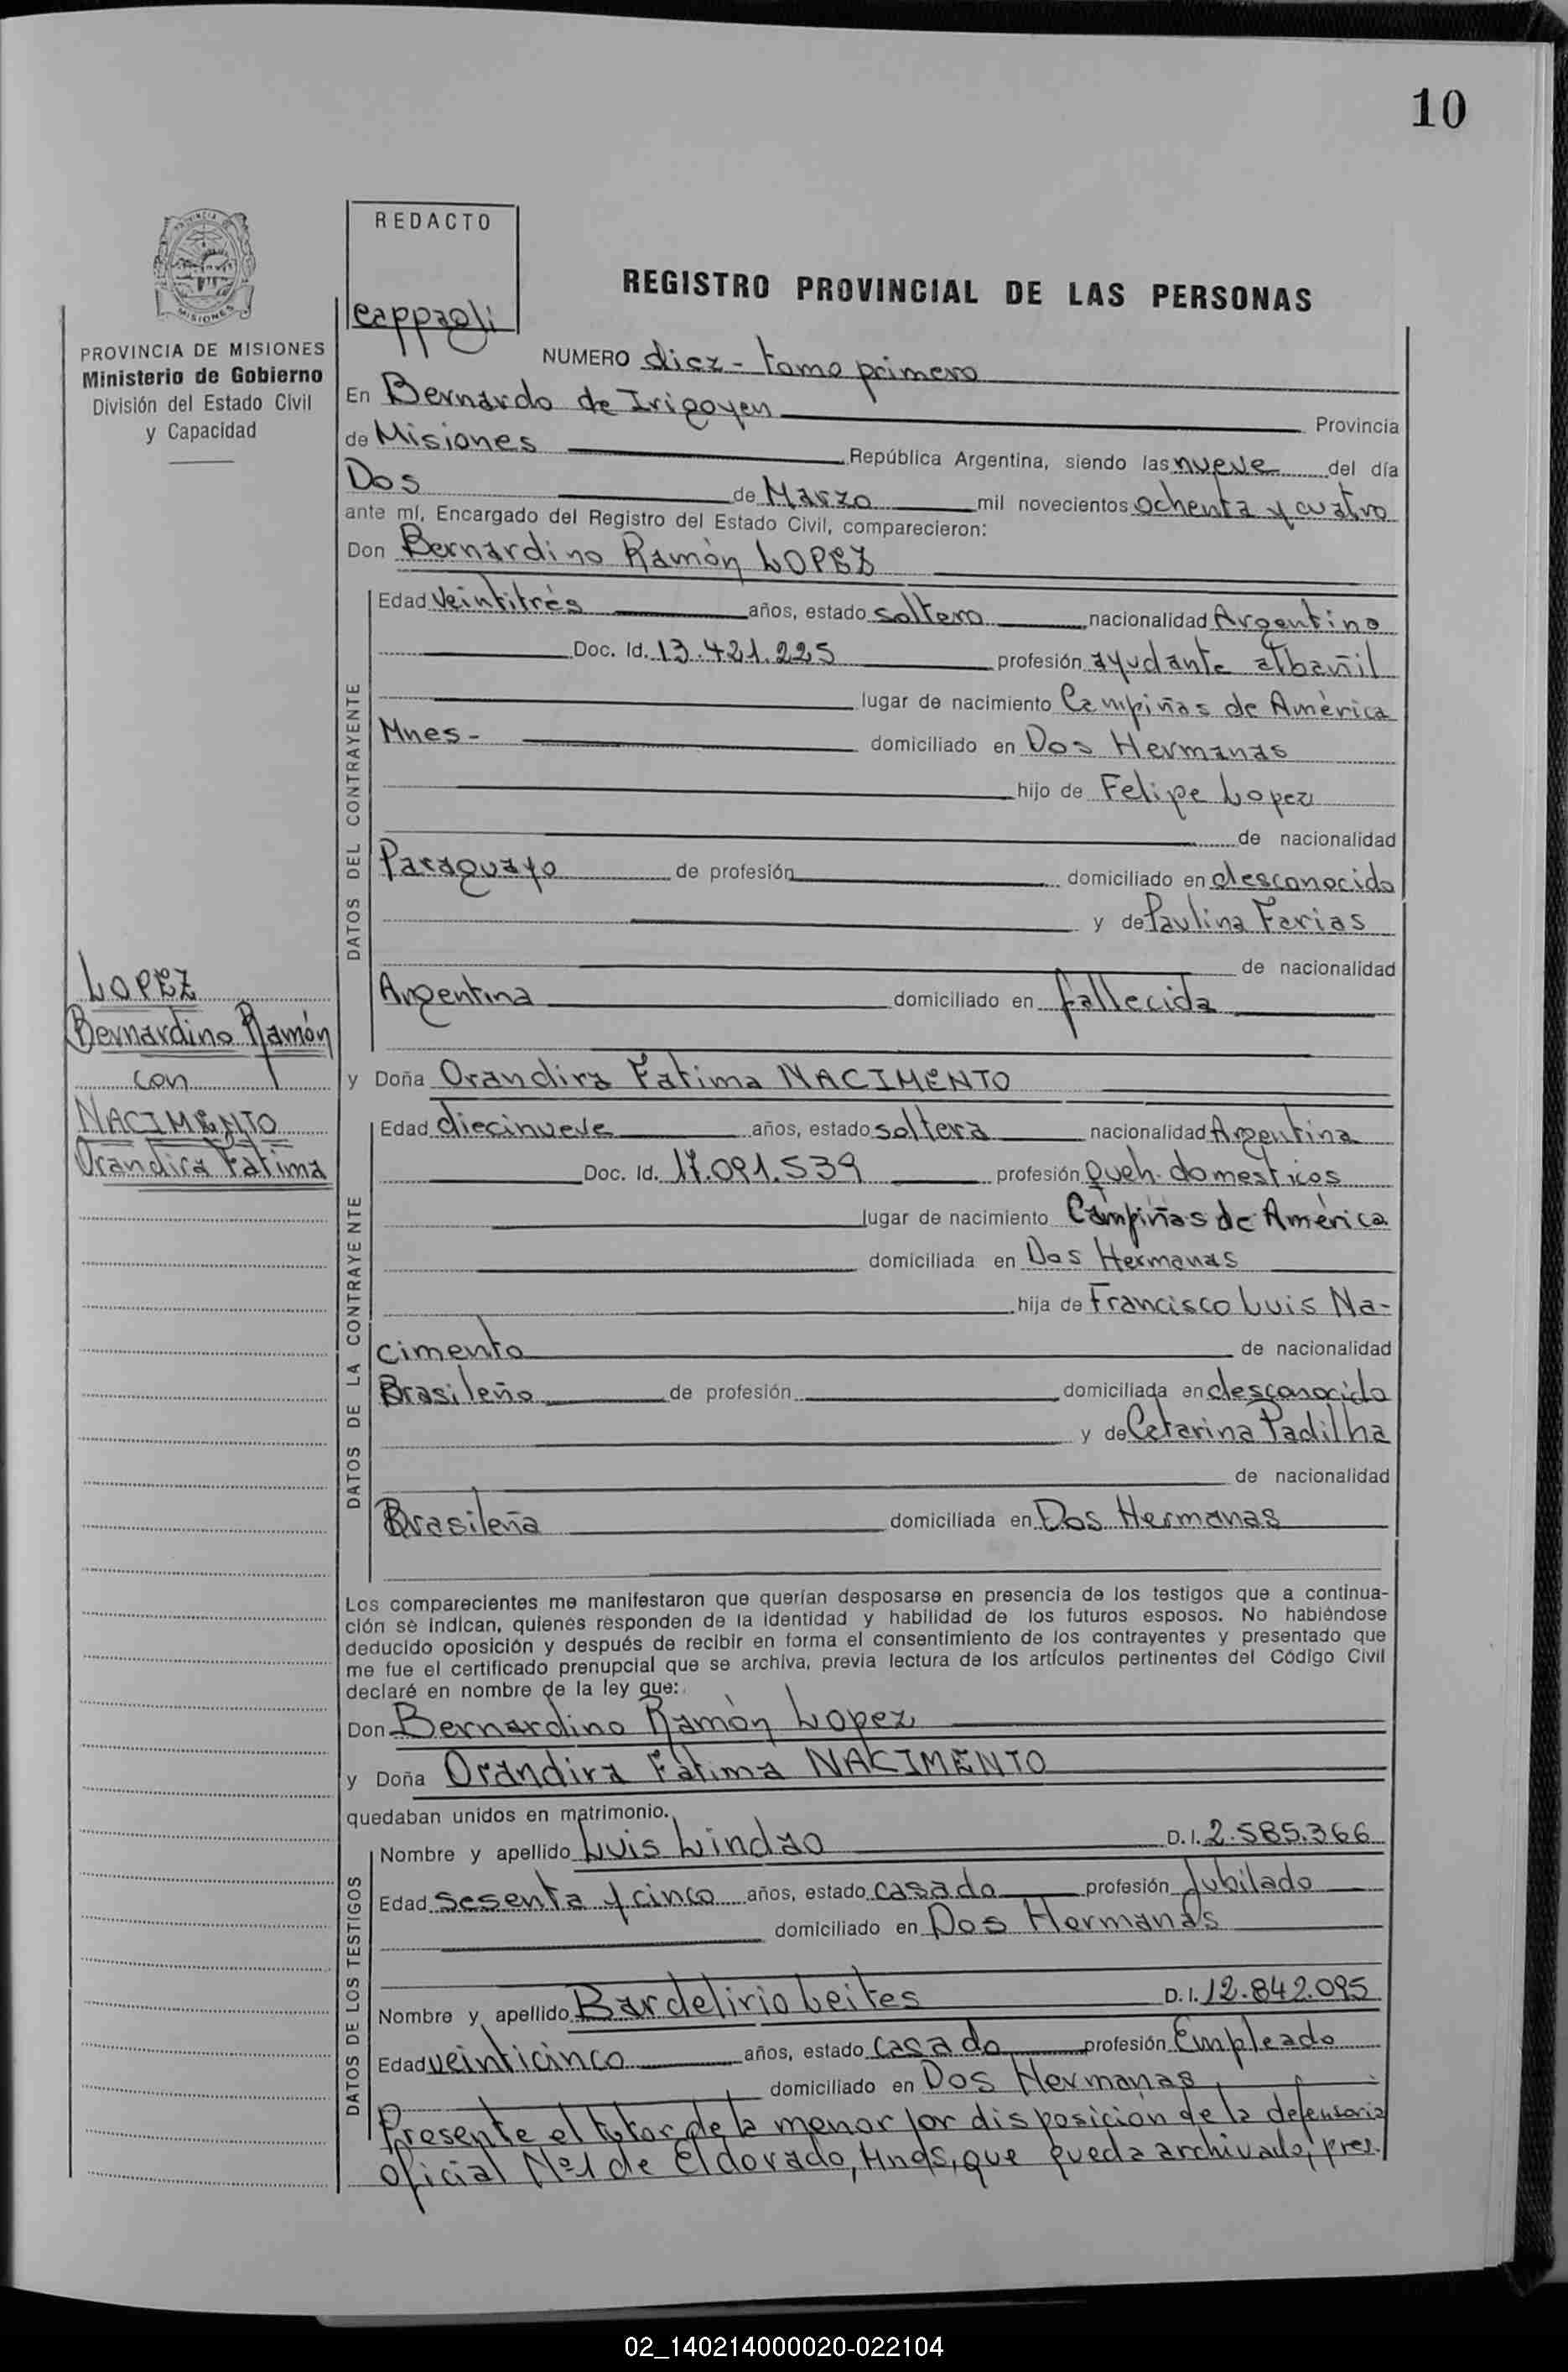 10
REDACTO
Cappagli
REGISTRO PROVINCIAL DE LAS PERSONAS
PROVINCIA DE MISIONES
Ministerio de Gobierno
División del Estado Civil
y Capacidad
NUMERO diez - tomo primero
En Bernardo de Irigoyen Provincia
de Misiones República Argentina, siendo las nueve del día
Dos de Marzo mil novecientos ochenta y cuatro
ante mí, Encargado del Registro del Estado Civil, comparecieron:
Don Bernardino Ramón LOPEZ
DATOS DEL CONTRAYENTE
Edad Veintitrés años, estado soltero nacionalidad Argentino
Doc. Id. 13.421.225 profesión ayudante albañil
lugar de nacimiento Campiñas de América
Mnes- domiciliado en Dos Hermanas
hijo de Felipe Lopez
de nacionalidad
Paraguayo de profesión domiciliado en desconocido
y de Paulina Farias
de nacionalidad
Argentina domiciliado en fallecida
LOPEZ
Bernardino Ramón
con
NACIMENTO
Orandira Fatima
y Doña Orandira Fatima NACIMENTO
DATOS DE LA CONTRAYENTE
Edad diecinueve años, estado soltera nacionalidad Argentina
Doc. Id. 17.091.539 profesión Queh. domesticos
lugar de nacimiento Campiñas de América
domiciliada en Dos Hermanas
hija de Francisco Luis Na-
cimento de nacionalidad
Brasileño de profesión domiciliada en desconocido
y de Catarina Padilha
de nacionalidad
Brasileña domiciliada en Dos Hermanas
Los comparecientes me manifestaron que querían desposarse en presencia de los testigos que a continua-
ción se indican, quienes responden de la identidad y habilidad de los futuros esposos. No habiéndose
deducido oposición y después de recibir en forma el consentimiento de los contrayentes y presentado que
me fue el certificado prenupcial que se archiva, previa lectura de los artículos pertinentes del Código Civil
declaré en nombre de la ley que:
Don Bernardino Ramón Lopez
y Doña Orandira Fatima NACIMENTO
quedaban unidos en matrimonio.
DATOS DE LOS TESTIGOS
Nombre y apellido Luis Lindao D.I. 2.585.366
Edad sesenta y cinco años, estado casado profesión Jubilado
domiciliado en Dos Hermanas
Nombre y apellido Bardelirio Leites D.I. 12.842.095
Edad veinticinco años, estado casado profesión Empleado
domiciliado en Dos Hermanas
Presente el tutor de la menor por disposición de la defensoria
oficial Nº1 de Eldorado, Mnes, que queda archivado, pres.
02_140214000020-022104